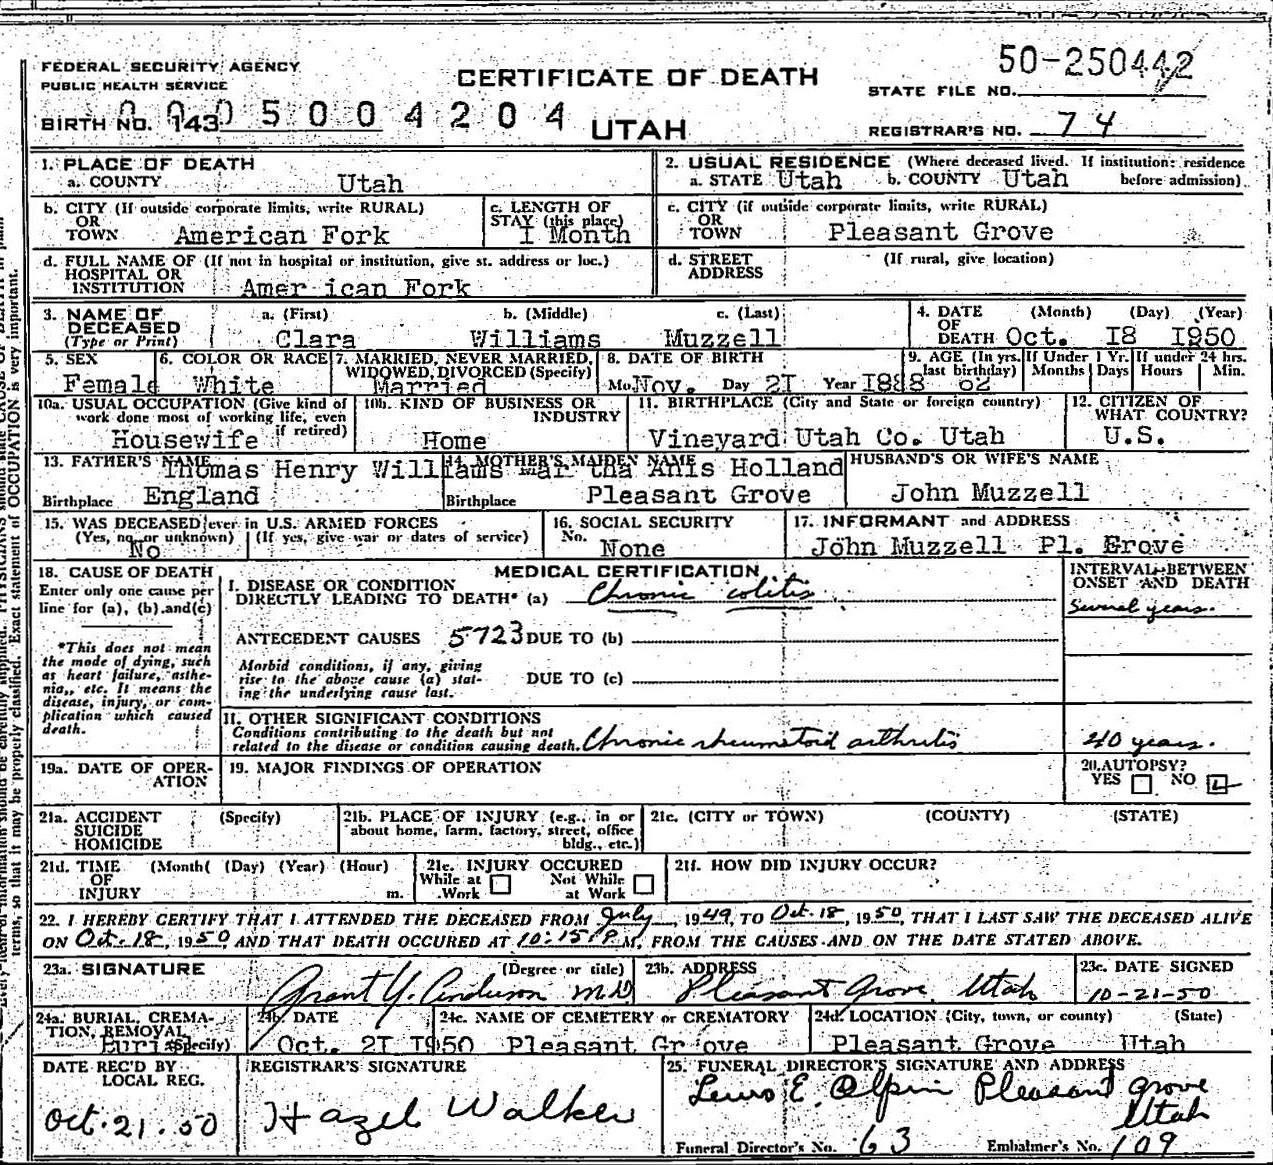 50-250442
FEDERAL SECURITY AGENCY
PUBLIC HEALTH SERVICE
CERTIFICATE OF DEATH
STATE FILE NO.
BIRTH NO. 143 005004204
UTAH
REGISTRAR'S NO. 74
1. PLACE OF DEATH
a. COUNTY Utah
2. USUAL RESIDENCE (Where deceased lived. If institution: residence before admission)
a. STATE Utah b. COUNTY Utah
b. CITY (If outside corporate limits, write RURAL)
OR
TOWN American Fork
c. LENGTH OF
STAY (this place)
I Month
c. CITY (if outside corporate limits, write RURAL)
OR
TOWN Pleasant Grove
d. FULL NAME OF (If not in hospital or institution, give st. address or loc.)
HOSPITAL OR
INSTITUTION Amer ican Fork
d. STREET
ADDRESS
(If rural, give location)
3. NAME OF
DECEASED
(Type or Print)
a. (First) b. (Middle) c. (Last)
Clara Williams Muzzell
4. DATE OF DEATH (Month) (Day) (Year)
Oct. I8 I950
5. SEX
Female
6. COLOR OR RACE
White
7. MARRIED, NEVER MARRIED,
WIDOWED, DIVORCED (Specify)
Married
8. DATE OF BIRTH
Mo. Nov. Day 2I Year I888
9. AGE (In yrs. last birthday)
If Under 1 Yr. Months Days
If under 24 hrs. Hours Min.
10a. USUAL OCCUPATION (Give kind of
work done most of working life, even
if retired)
Housewife
10b. KIND OF BUSINESS OR
INDUSTRY
Home
11. BIRTHPLACE (City and State or foreign country)
Vineyard Utah Co. Utah
12. CITIZEN OF
WHAT COUNTRY?
U.S.
13. FATHER'S NAME
Thomas Henry Williams
Birthplace England
14. MOTHER'S MAIDEN NAME
Mar tha Anis Holland
Birthplace Pleasant Grove
HUSBAND'S OR WIFE'S NAME
John Muzzell
15. WAS DECEASED ever in U.S. ARMED FORCES
(Yes, no, or unknown) (If yes, give war or dates of service)
No
16. SOCIAL SECURITY
No. None
17. INFORMANT and ADDRESS
John Muzzell Pl. Grove
18. CAUSE OF DEATH
Enter only one cause per
line for (a), (b) and (c)
*This does not mean
the mode of dying, such
as heart failure, asthe-
nia, etc. It means the
disease, injury, or com-
plication which caused
death.
MEDICAL CERTIFICATION
I. DISEASE OR CONDITION
DIRECTLY LEADING TO DEATH* (a) Chronic colitis
INTERVAL BETWEEN
ONSET AND DEATH
Several years.
ANTECEDENT CAUSES 5723 DUE TO (b)
Morbid conditions, if any, giving
rise to the above cause (a) stat-
ing the underlying cause last.
DUE TO (c)
II. OTHER SIGNIFICANT CONDITIONS
Conditions contributing to the death but not
related to the disease or condition causing death. Chronic rheumatoid arthritis 40 years.
19a. DATE OF OPER-
ATION
19. MAJOR FINDINGS OF OPERATION
20. AUTOPSY?
YES NO
21a. ACCIDENT
SUICIDE
HOMICIDE
(Specify)
21b. PLACE OF INJURY (e.g., in or
about home, farm, factory, street, office
bldg., etc.)
21c. (CITY or TOWN) (COUNTY) (STATE)
21d. TIME
OF
INJURY
(Month( (Day) (Year) (Hour)
m.
21e. INJURY OCCURED
While at Work
Not While at Work
21f. HOW DID INJURY OCCUR?
22. I HEREBY CERTIFY THAT I ATTENDED THE DECEASED FROM July, 1949, TO Oct. 18, 1950, THAT I LAST SAW THE DECEASED ALIVE
ON Oct. 18, 1950 AND THAT DEATH OCCURED AT 10:15 P M, FROM THE CAUSES AND ON THE DATE STATED ABOVE.
23a. SIGNATURE (Degree or title)
Grant Y. Anderson MD
23b. ADDRESS
Pleasant Grove, Utah
23c. DATE SIGNED
10-21-50
24a. BURIAL, CREMA-
TION, REMOVAL
(Specify)
Burial
24b. DATE
Oct. 2I I950
24c. NAME OF CEMETERY or CREMATORY
Pleasant Gr ove
24d. LOCATION (City, town, or county) (State)
Pleasant Grove Utah
DATE REC'D BY
LOCAL REG.
Oct. 21. 50
REGISTRAR'S SIGNATURE
Hazel Walker
25. FUNERAL DIRECTOR'S SIGNATURE AND ADDRESS
Lewis E. Olpin Pleasant Grove
Utah
Funeral Director's No. 63 Embalmer's No. 109